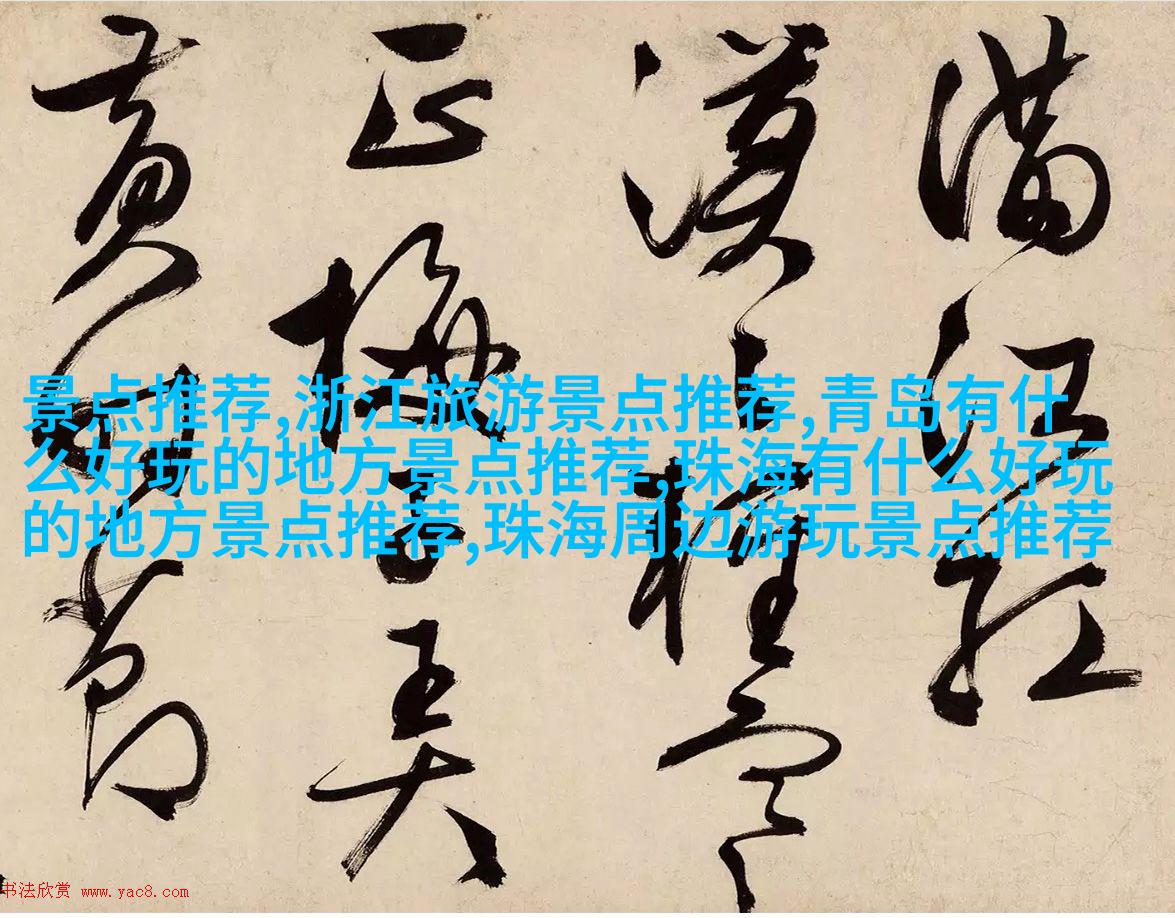 滿江紅
漠〻輕陰
正梅子弄
黄時節
景点推荐,浙江旅游景点推荐,青岛有什
么好玩的地方景点推荐,珠海有什么好玩
的地方景点推荐,珠海周边游玩景点推荐
书法欣赏 www.yac8.com